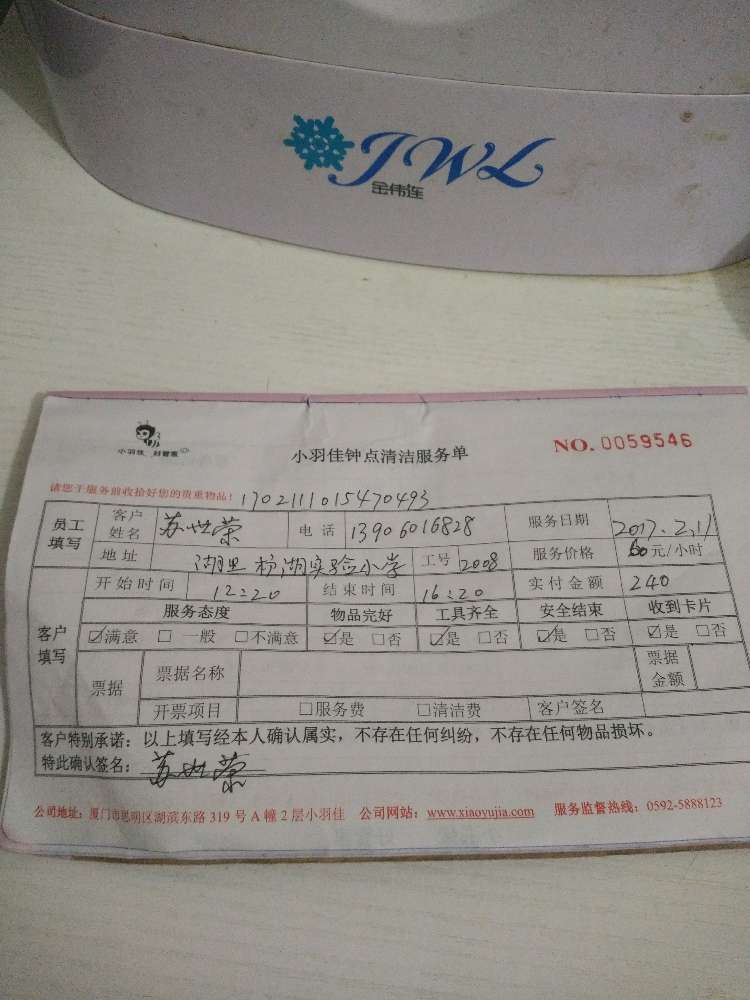 JWL
金伟连
小羽佳 好管家
小羽佳钟点清洁服务单
NO. 0059546
请您于服务前收拾好您的贵重物品！ 1702111015470493
员工填写 客户姓名 苏世荣 电话 13906016828 服务日期 2017.2.11
地址 湖里 枋湖实验小学 工号 2008 服务价格 60元/小时
客户填写 开始时间 12:20 结束时间 16:20 实付金额 240
服务态度 物品完好 工具齐全 安全结束 收到卡片
☑满意 □一般 □不满意 ☑是 □否 ☑是 □否 ☑是 □否 ☑是 □否
票据 票据名称 票据金额
开票项目 □服务费 □清洁费 客户签名
客户特别承诺：以上填写经本人确认属实，不存在任何纠纷，不存在任何物品损坏。
特此确认签名： 苏世荣
公司地址：厦门市思明区湖滨东路 319 号 A 幢 2 层小羽佳 公司网站：www.xiaoyujia.com 服务监督热线：0592-5888123